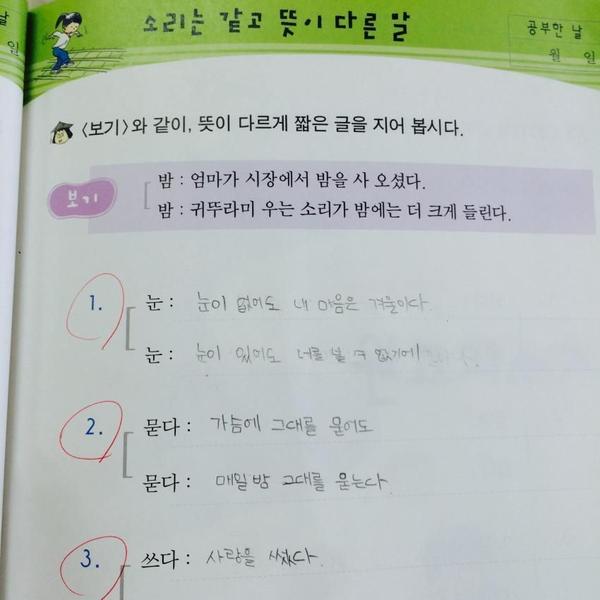 소리는 같고 뜻이 다른 말
공부한 날
월 일
일
<보기>와 같이, 뜻이 다르게 짧은 글을 지어 봅시다.
보기
밤 : 엄마가 시장에서 밤을 사 오셨다.
밤 : 귀뚜라미 우는 소리가 밤에는 더 크게 들린다.
1.
눈 : 눈이 없어도 내 마음은 겨울이다.
눈 : 눈이 있어도 너를 볼 수 없기에
2.
묻다 : 가슴에 그대를 묻어도
묻다 : 매일 밤 그대를 묻는다
3.
쓰다 : 사랑을 썼다.